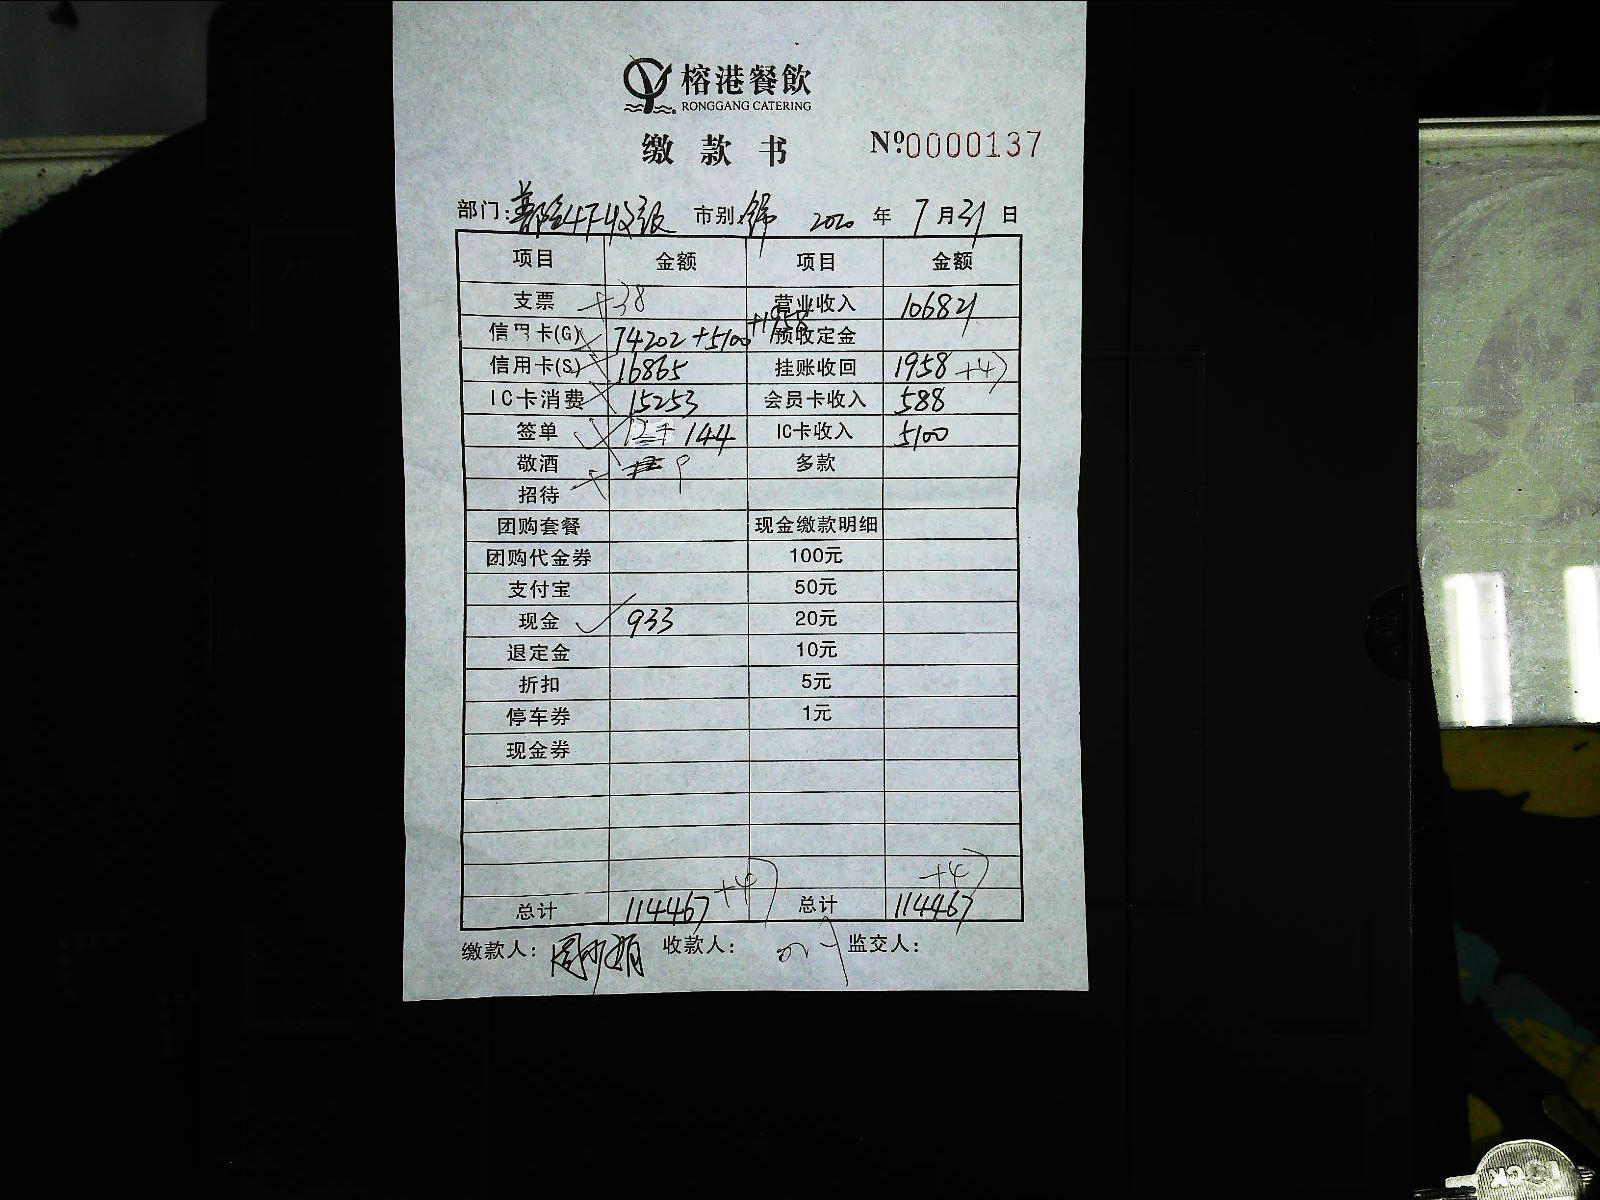 榕港餐飲
RONGGANG CATERING
缴款书 №0000137
部门: 市别: 2020 年 7 月 31 日
项目 金额 项目 金额
支票 +38 营业收入 106821
信用卡(G) 74202 +5100 +1958 预收定金
信用卡(S) 16865 挂账收回 1958 +4
IC卡消费 15253 会员卡收入 588
签单 144 IC卡收入 5100
敬酒 多款
招待
团购套餐 现金缴款明细
团购代金券 100元
支付宝 50元
现金 933 20元
退定金 10元
折扣 5元
停车券 1元
现金券
+4 +4
总计 114467 总计 114467
缴款人: 收款人: 监交人: